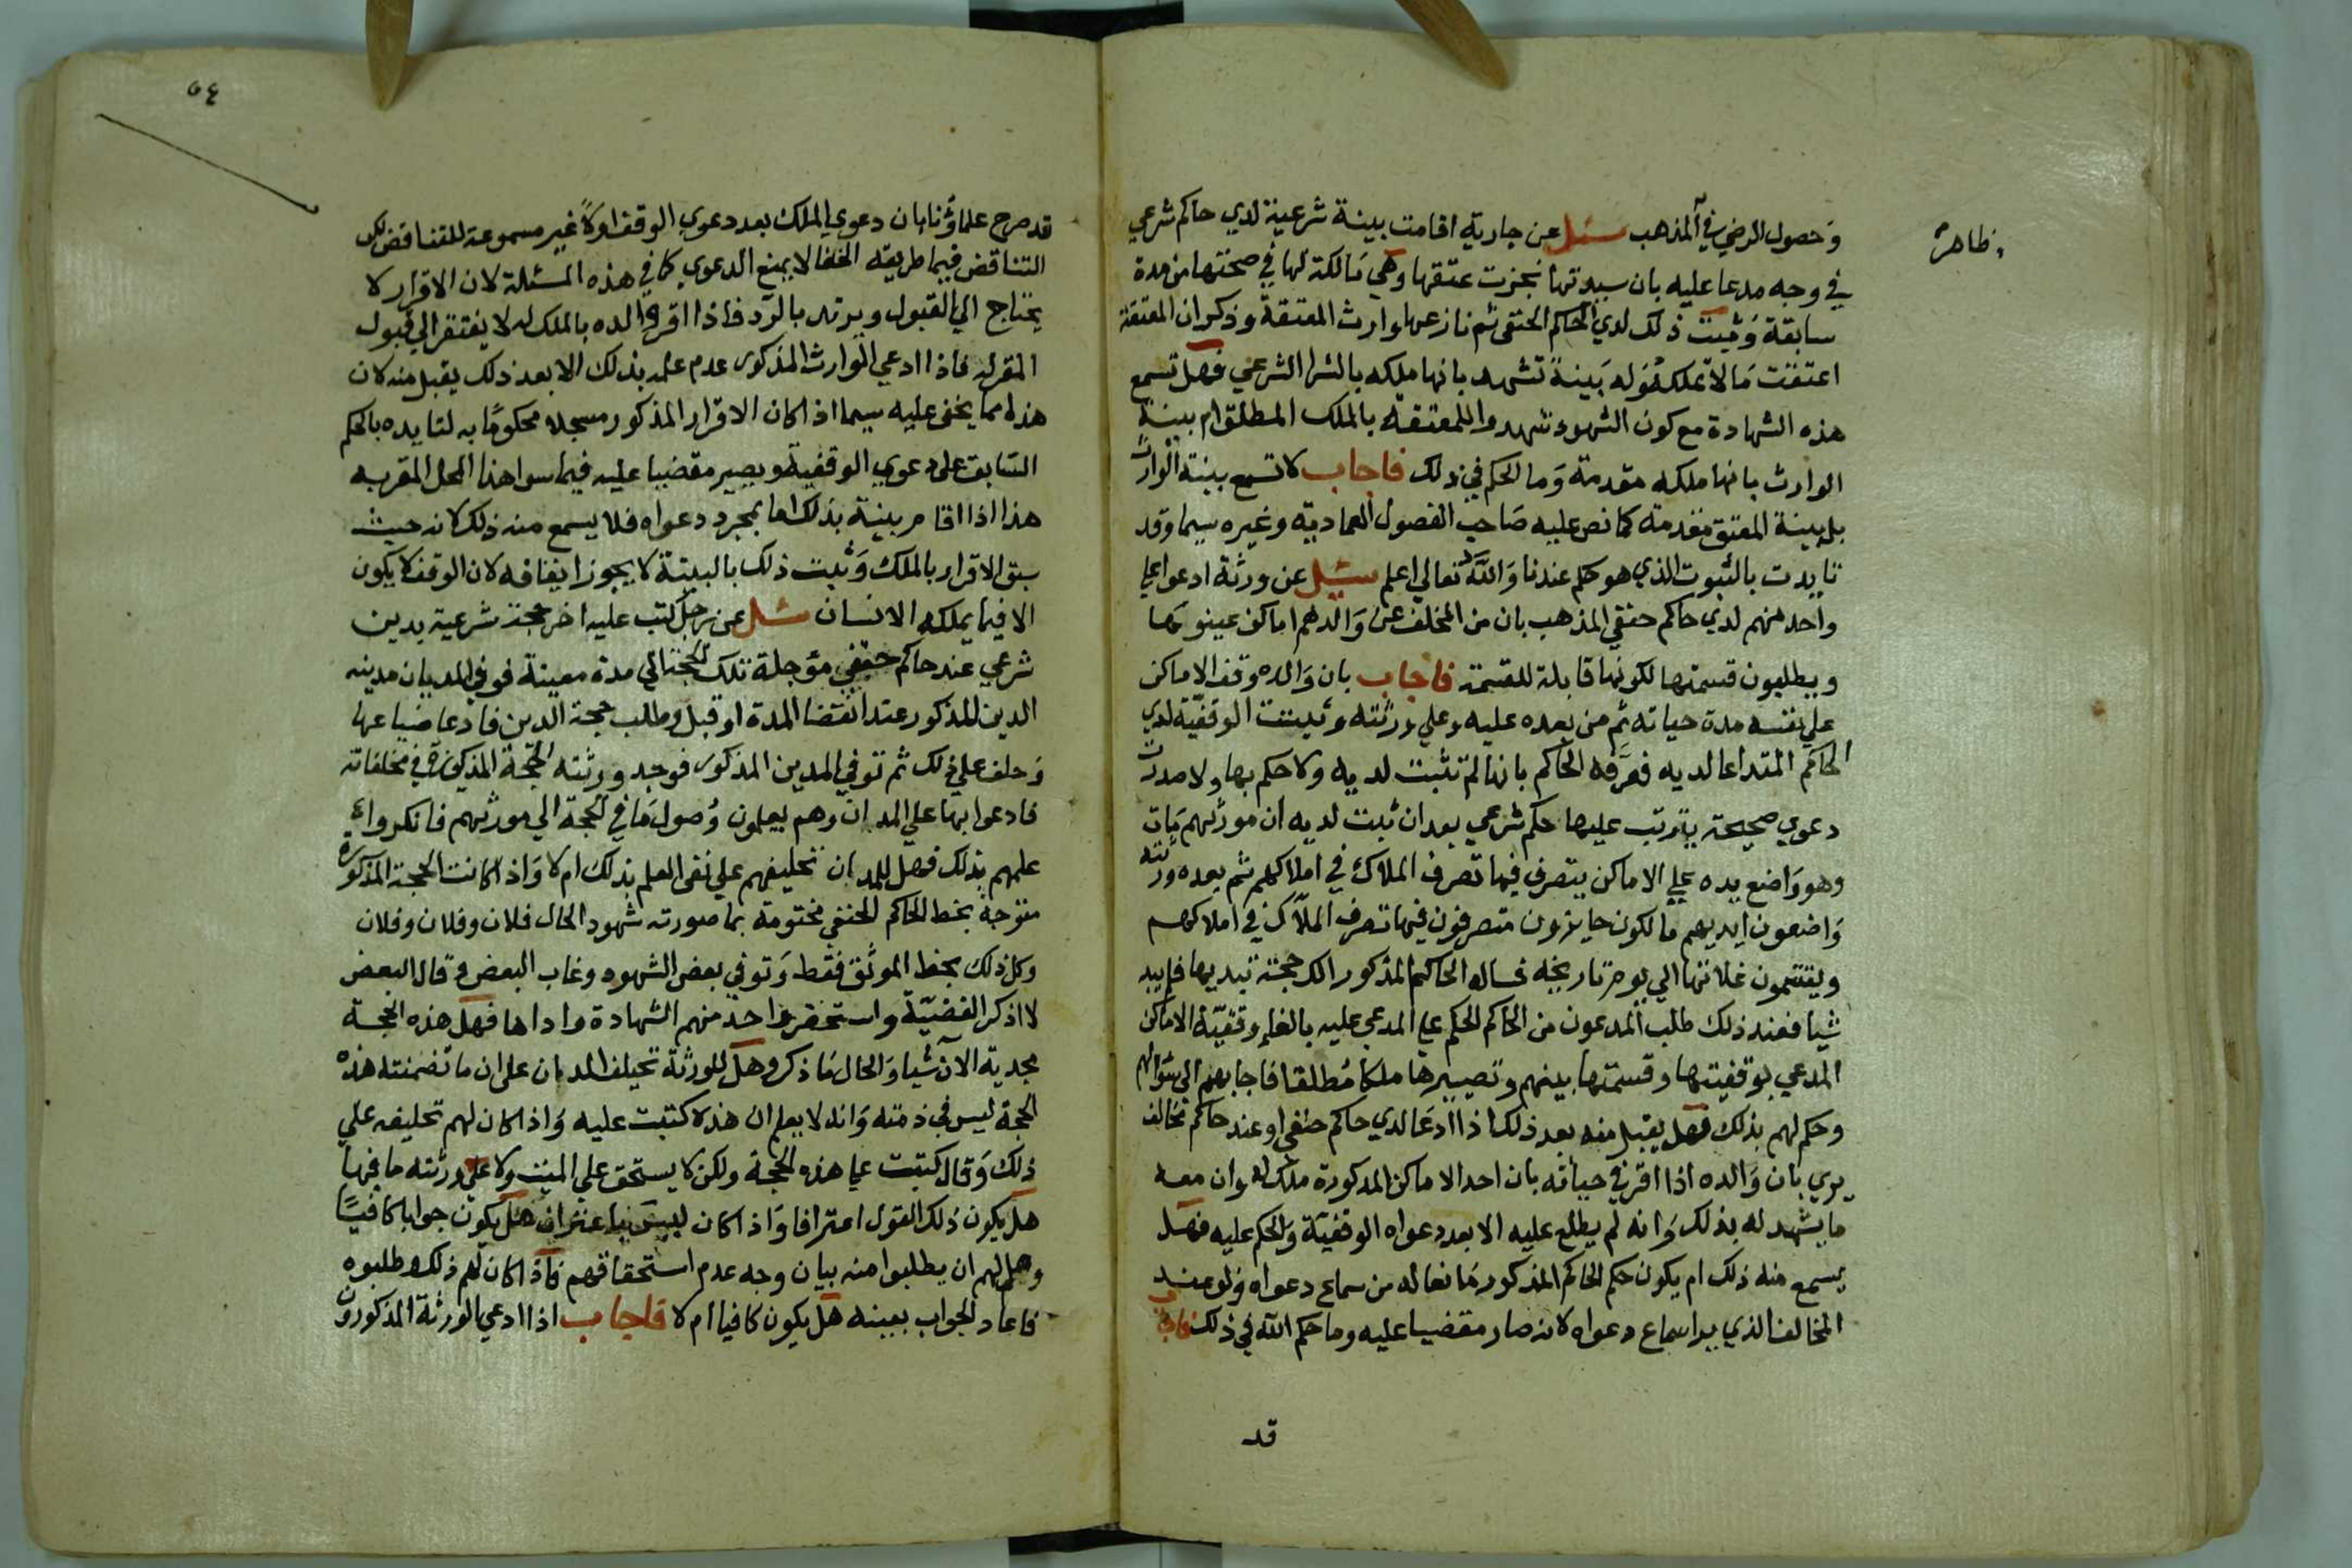 وحصول الرضي في المذهب سئل عن جارية اقامت بينة شرعية لدي حاكم شرعي
ظاهر
في وجه مدعا عليه بان سيدتها نجزت عتقها وهي مالكة لها في صحتها من مدة
سابقة وثبت ذلك لدي الحاكم الحنفي ثم نازعها وارث المعتقة وذكر ان المعتقة
اعتقت مالا تملكه وله بينة تشهد بانها ملكه بالشرا الشرعي فهل تسمع
هذه الشهادة مع كون الشهود شهدوا للمعتقة بالملك المطلق ام بينة
الوارث بانها ملكه مقدمة وما الحكم في ذلك فاجاب لا تسمع بينة الوارث
بل بينة المعتق مقدمة كما نص عليه صاحب الفصول العمادية وغيره سيما وقد
تايدت بالثبوت الذي هو حكم عندنا والله تعالي اعلم سئل عن ورثة ادعوا علي
واحد منهم لدي حاكم حنفي المذهب بان من المخلف عن والدهم اماكن عينوها
ويطلبون قسمتها لكونها قابلة للقسمة فاجاب بان والده وقف الاماكن
علي نفسه مدة حياته ثم من بعده عليه وعلي ورثته وثبتت الوقفية لدي
الحاكم المتداعا لديه فعرفه الحاكم بانها لم تثبت لديه ولا حكم بها ولا صدرت
دعوي صحيحة يترتب عليها حكم شرعي بعد ان ثبت لديه ان مورثهم مات
وهو واضع يده علي الاماكن يتصرف فيها تصرف الملاك في املاكهم ثم بعده ورثته
واضعون ايديهم مالكون حايزون متصرفون فيها تصرف الملاك في املاكهم
ويقتسمون غلاتها الي يوم تاريخه فساله الحاكم المذكور الك حجة تبديها فلم يبد
شيا فعند ذلك طلب المدعون من الحاكم الحكم علي المدعي عليه بالغاء وقفية الاماكن
المدعي بوقفيتها وقسمتها بينهم وتصييرها ملكا مطلقا فاجابهم الي سؤالهم
وحكم لهم بذلك فهل يقبل منه بعد ذلك اذا ادعا لدي حاكم حنفي او عند حاكم مخالف
يري بان والده اذا اقر في حياته بان احد الاماكن المذكورة ملك له وان معه
ما يشهد له بذلك وانه لم يطلع عليه الا بعد دعواه الوقفية والحكم عليه فهل
يسمع منه ذلك ام يكون حكم الحاكم المذكور مانعا له من سماع دعواه ولو عند
المخالف الذي يرا سماع دعواه لانه صار مقضيا عليه وما حكم الله في ذلك فاجاب
قد
٥٤
قد صرح علماؤنا بان دعوي الملك بعد دعوي الوقف اولا غير مسموعة للتناقض لكن
التناقض فيما طريقه الخفا لا يمنع الدعوي كما في هذه المسئلة لان الاقرار لا
يحتاج الي القبول ويرتد بالرد فاذا اقر والده بالملك له لا يفتقر الي قبول
المقر له فاذا ادعي الوارث المذكور عدم علمه بذلك الا بعد ذلك يقبل منه لان
هذا مما يخفي عليه سيما اذا كان الاقرار المذكور مسجلا محكوما به لتايده بالحكم
السابق علي دعوي الوقفية ويصير مقضيا عليه فيما سوا هذا المحل المقر به
هذا اذا اقام بينة بذلك اما بمجرد دعواه فلا يسمع منه ذلك لانه حيث
سبق الاقرار بالملك وثبت ذلك بالبينة لا يجوز ايقافه لان الوقف لا يكون
الا فيما يملكه الانسان سئل عن رجل كتب عليه اخر حجة شرعية بدين
شرعي عند حاكم حنفي مؤجلة تلك الحجة الي مدة معينة فوفي المديان مدينه
الدين المذكور عند انقضا المدة او قبل وطلب حجة الدين فادعا ضياعها
وحلف علي ذلك ثم توفي المدين المذكور فوجد ورثته الحجة المذكورة في مخلفاته
فادعوا بها علي المديان وهم يعلمون وصول ما في الحجة الي مورثهم فانكروا
علمهم بذلك فهل للمديان تحليفهم علي نفي العلم بذلك ام لا واذا كانت الحجة المذكورة
متوجة بخط الحاكم الحنفي مختومة بما صورته شهود الحال فلان وفلان وفلان
وكل ذلك بخط الموثق فقط وتوفي بعض الشهود وغاب البعض وقال البعض
لا اذكر القضية واستحضر واحد منهم الشهادة واداها فهل هذه الحجة
مجدية الان شيا والحال ما ذكر وهل للورثة تحليف المديان علي ان ما تضمنته هذه
الحجة ليس في ذمته وانه لا يعلم ان هذه كتبت عليه واذا كان لهم تحليفه علي
ذلك وقال كتبت علي هذه الحجة ولكن لا يستحق علي الميت ولا علي ورثته ما فيها
هل يكون ذلك القول اعترافا واذا كان ليس باعتراف هل يكون جوابا كافيا
وهل لهم ان يطلبوا منه بيان وجه عدم استحقاقهم فاذا كان لهم ذلك وطلبوه
فاعاد الجواب بعينه هل يكون كافيا ام لا فاجاب اذا ادعي الورثة المذكورون